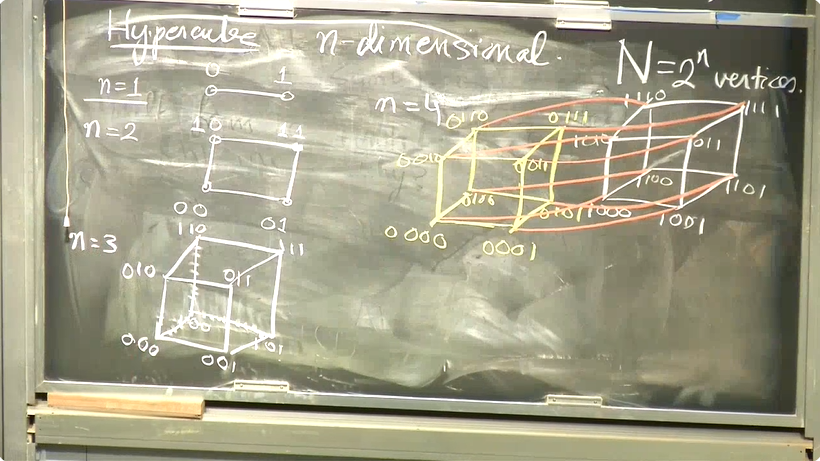 Hypercube n-dimensional.
N=2ⁿ vertices.
n=1
0 1
n=2
10 11
00 01
n=3
110 11
010 011
000 001 101
n=4
0110 0111
0010 0011
0100 0101
0000 0001
1110 1111
1010 1011
1100 1101
1000 1001